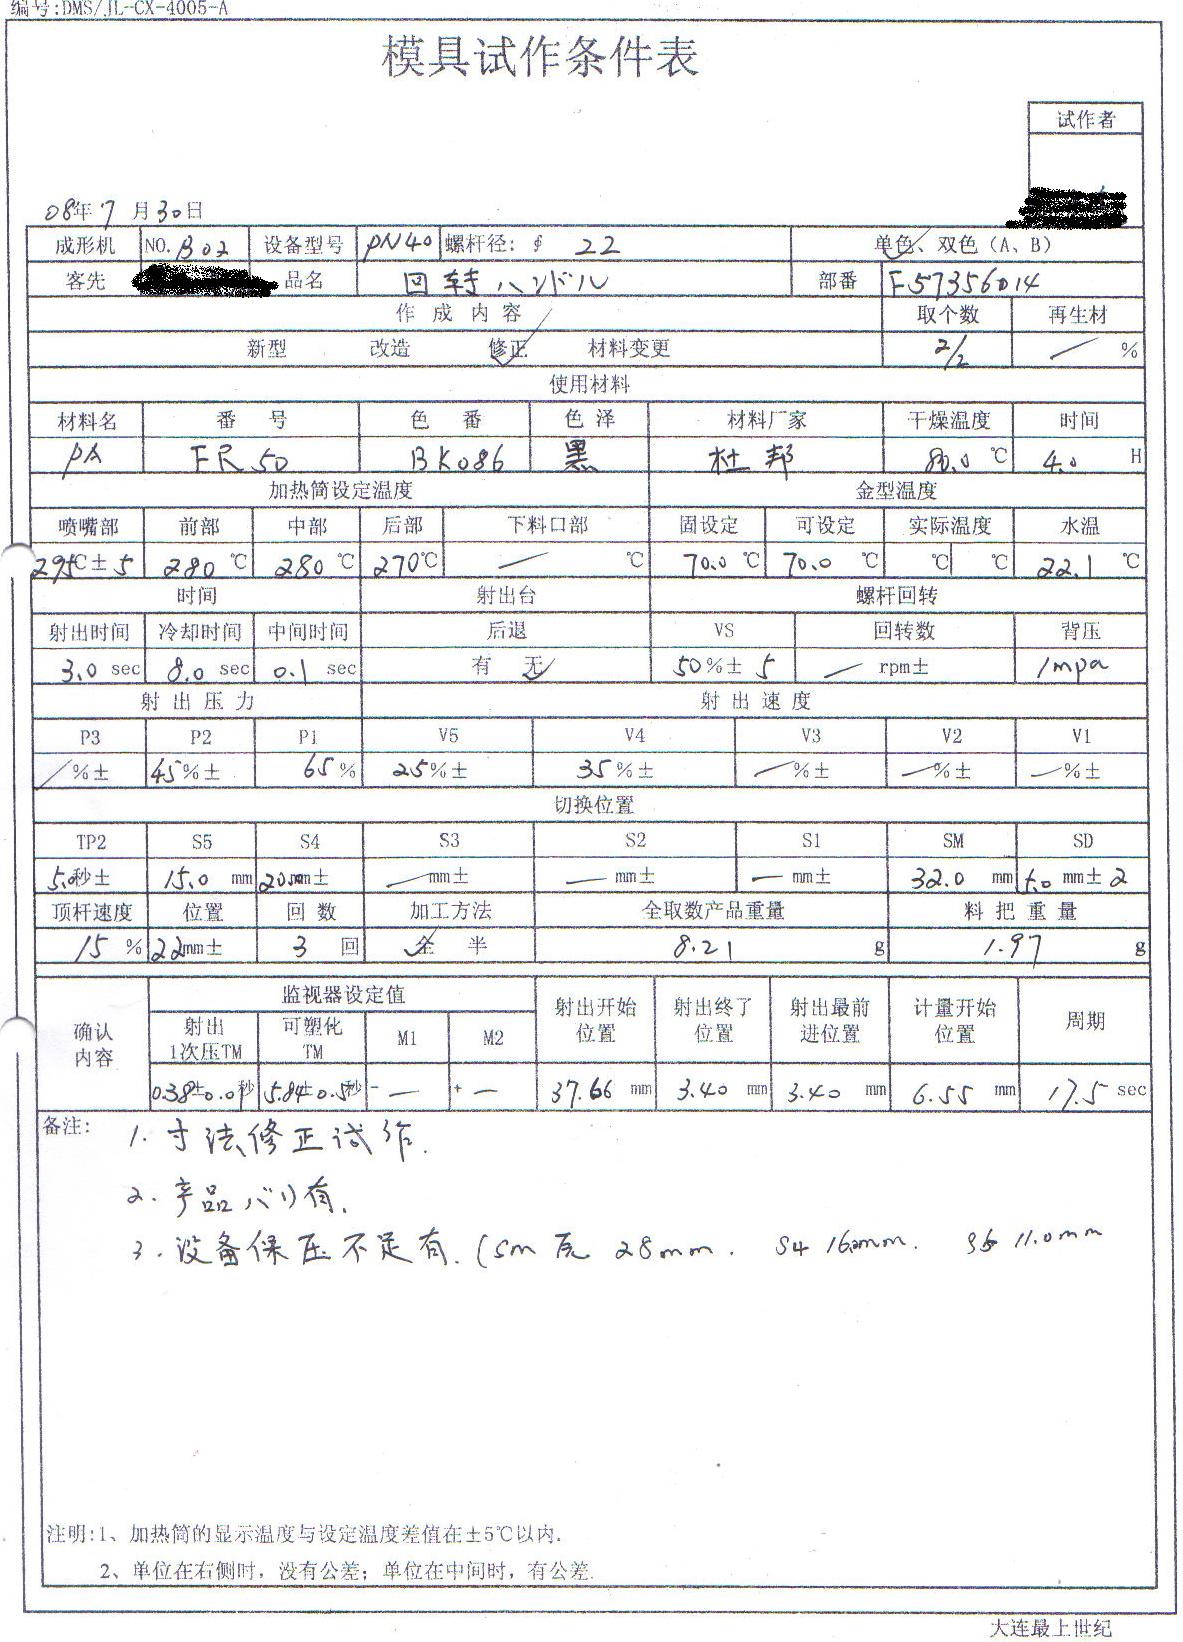 编号:DMS/JL-CX-4005-A
模具试作条件表
试作者
08年7月30日
成形机 NO. B02 设备型号 PN40 螺杆径: φ 22 单色、双色（A、B）
客先 品名 回转ハンドル 部番 F57356014
作成内容 取个数 再生材
新型 改造 修正 材料变更 2/2 / %
使用材料
材料名 番号 色番 色泽 材料厂家 干燥温度 时间
PA FR50 BK086 黑 杜邦 80.0 ℃ 4.0 H
加热筒设定温度 金型温度
喷嘴部 前部 中部 后部 下料口部 固设定 可设定 实际温度 水温
295℃±5 280 ℃ 280 ℃ 270℃ — ℃ 70.0 ℃ 70.0 ℃ ℃ ℃ 22.1 ℃
时间 射出台 螺杆回转
射出时间 冷却时间 中间时间 后退 VS 回转数 背压
3.0 sec 8.0 sec 0.1 sec 有 无 50%± 5 — rpm± 1mpa
射出压力 射出速度
P3 P2 P1 V5 V4 V3 V2 V1
/%± 45%± 65% 25%± 35%± —%± —%± —%±
切换位置
TP2 S5 S4 S3 S2 S1 SM SD
5.0秒± 15.0 mm 20.0mm± —mm± —mm± —mm± 32.0 mm 5.0 mm± 2
顶杆速度 位置 回数 加工方法 全取数产品重量 料把重量
15 % 22mm± 3 回 全 半 8.21 g 1.97 g
确认内容 监视器设定值 射出开始位置 射出终了位置 射出最前进位置 计量开始位置 周期
射出1次压TM 可塑化TM M1 M2
0.38±0.0秒 5.84±0.5秒 - — + — 37.66 mm 3.40 mm 3.40 mm 6.55 mm 17.5 sec
备注: 1. 寸法修正试作.
2. 产品バリ有.
3. 设备保压不足有. (SM 28mm. S4 16.0mm. S5 11.0mm
注明:1、加热筒的显示温度与设定温度差值在±5℃以内.
2、单位在右侧时，没有公差；单位在中间时，有公差.
大连最上世纪